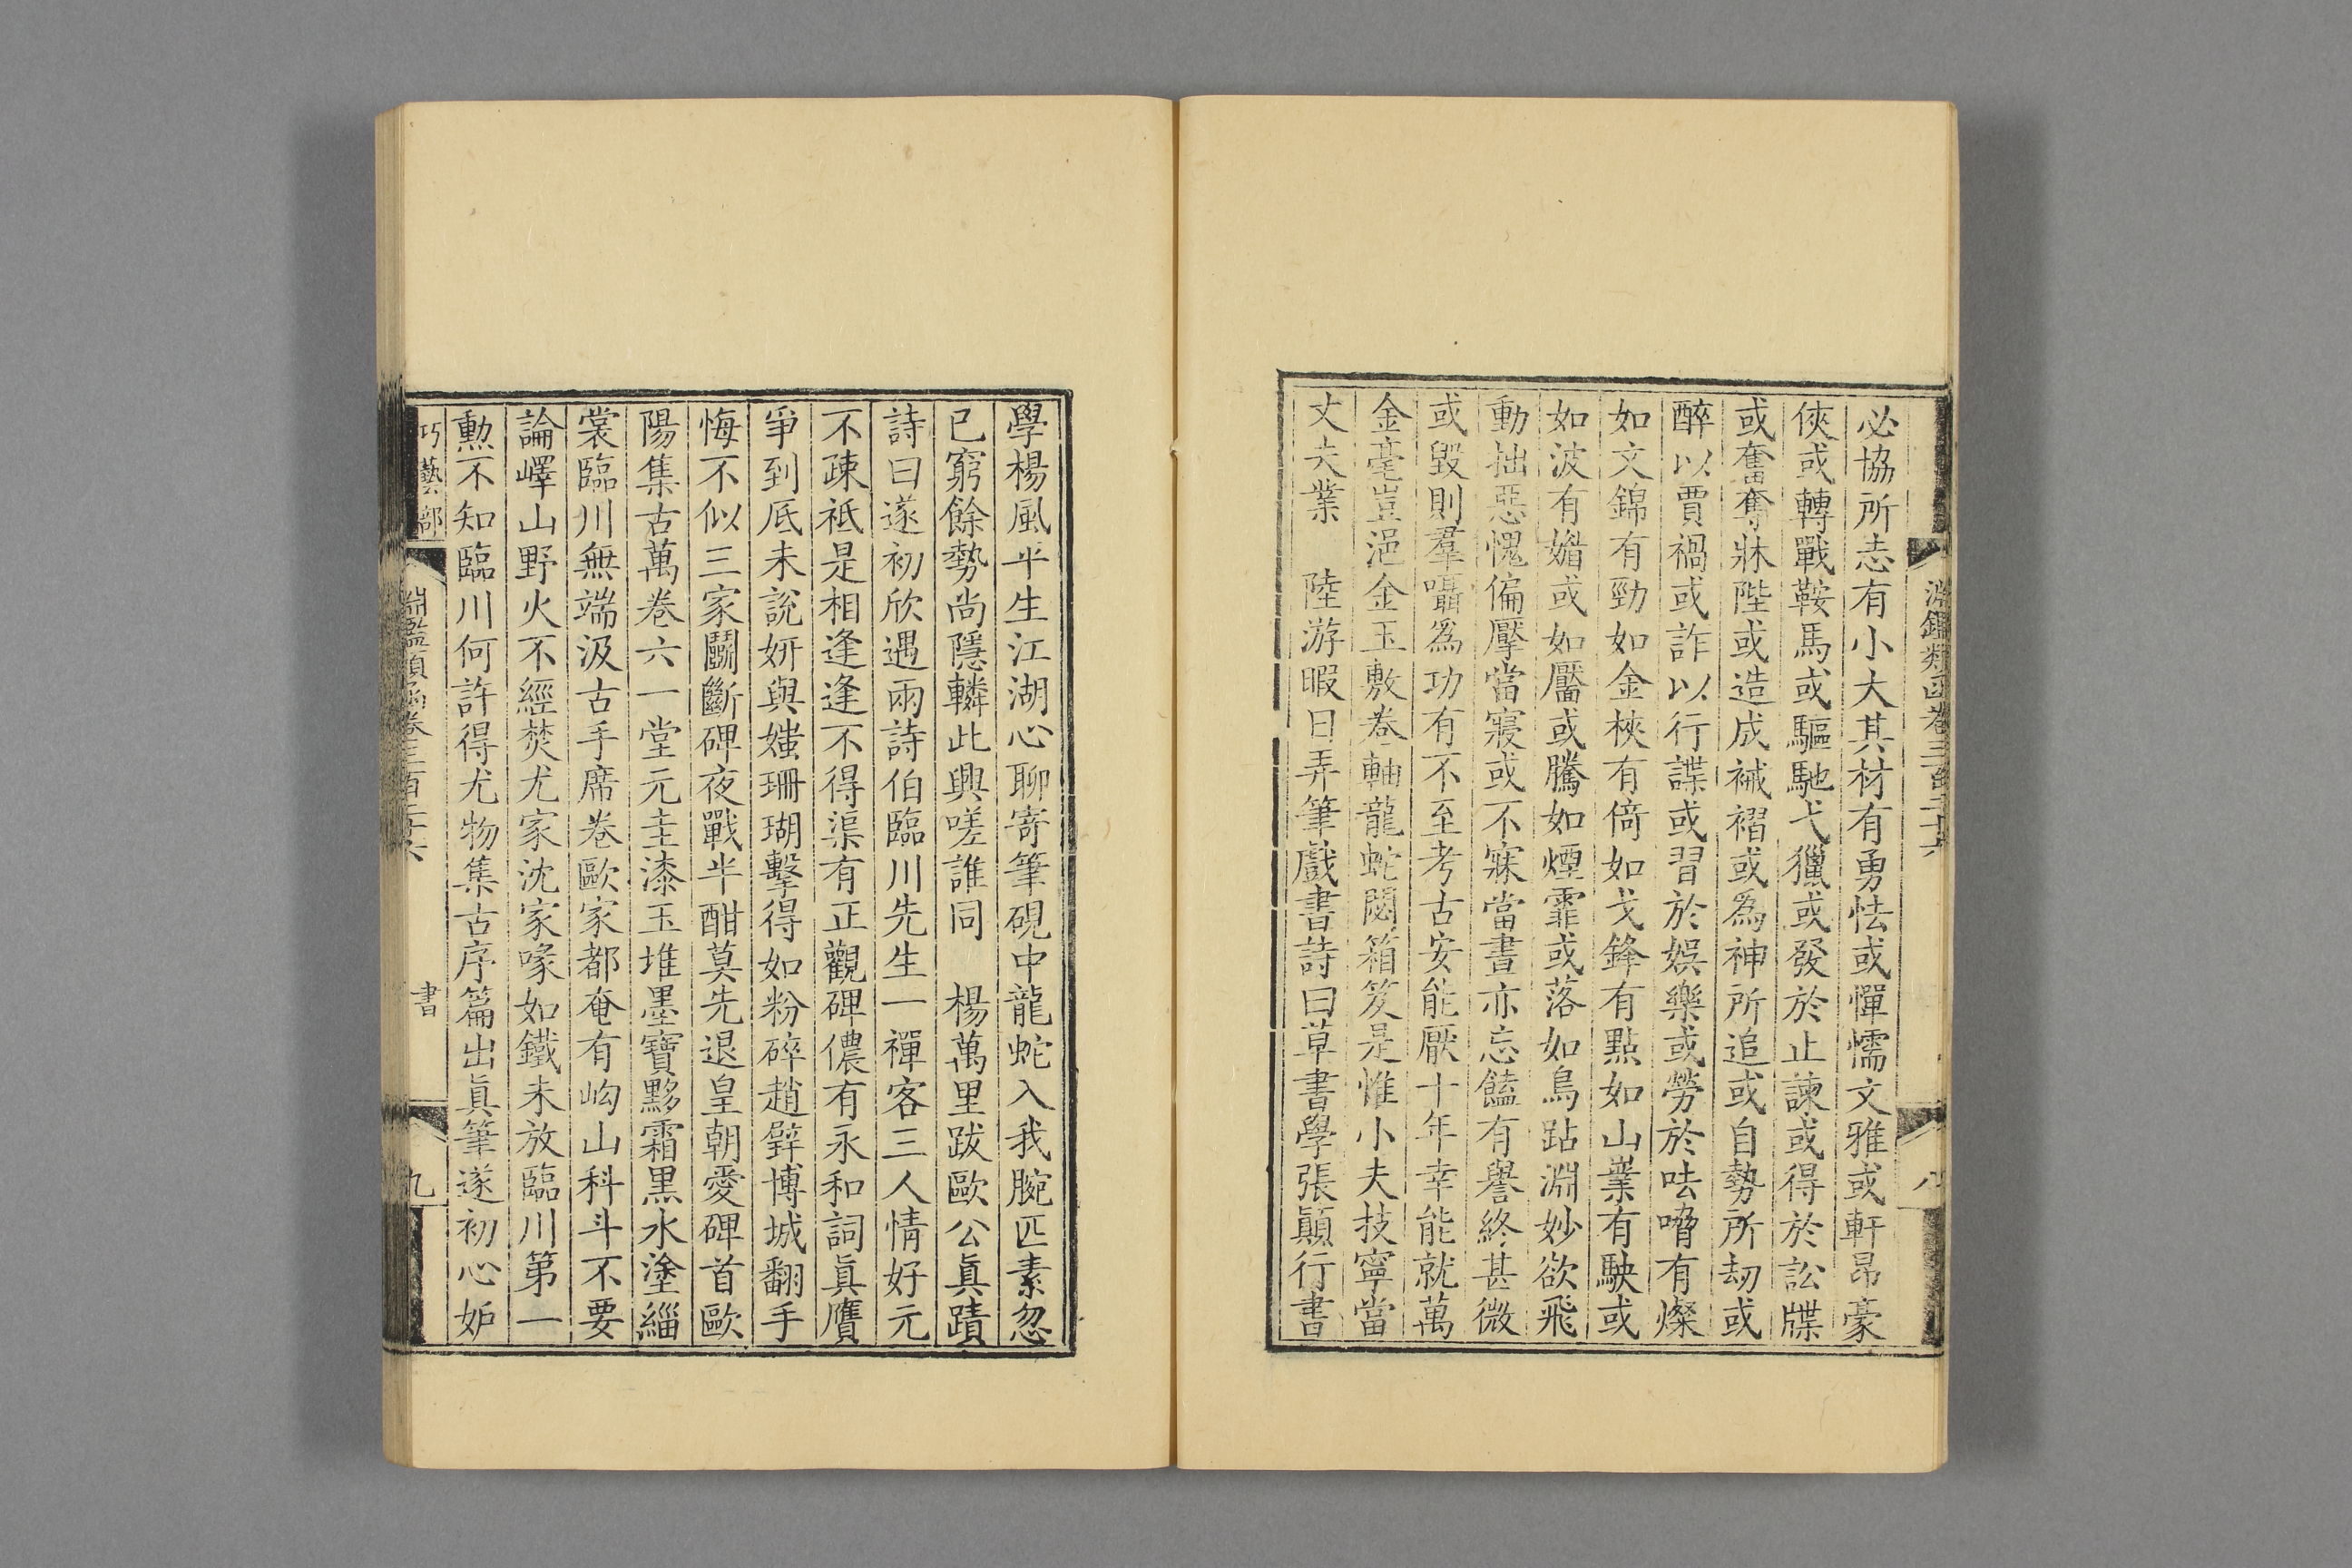 必協所志有小大其材有勇怯或憚懦文雅或軒昂豪
俠或轉戰鞍馬或驅馳弋獵或發於止諫或得於訟牒
或奮奪牀陛或造成祴褶或為神所追或自勢所刧或
醉以賈禍或詐以行諜或習於娛樂或勞於呿嗋有燦
如文錦有勁如金梜有倚如戈鋒有點如山嶪有駃或
如波有媚或如靨或騰如煙霏或落如鳥跕淵妙欲飛
動拙惡愧偏壓當寢或不寐當晝亦忘饁有譽終甚微
或毀則羣囁為功有不至考古安能厭十年幸能就萬
金毫豈浥金玉敷卷軸龍蛇閟箱笈是惟小夫技寧當
丈夫業 陸游暇日弄筆戲書詩曰草書學張顚行書
淵鑑類函卷三百二十六
八
學楊風平生江湖心聊寄筆硯中龍蛇入我腕匹素忽
已窮餘勢尚隱轔此興嗟誰同 楊萬里跋歐公眞蹟
詩曰遂初欣遇兩詩伯臨川先生一禪客三人情好元
不疎祗是相逢逢不得渠有正觀碑儂有永和詞眞贗
爭到底未說妍與媸珊瑚擊得如粉碎趙璧博城翻手
悔不似三家鬭斷碑夜戰半酣莫先退皇朝愛碑首歐
陽集古萬卷六一堂元圭漆玉堆墨寶黟霜黑水塗緇
裳臨川無端汲古手席卷歐家都奄有岣山科斗不要
論嶧山野火不經焚尤家沈家喙如鐵未放臨川第一
勲不知臨川何許得尤物集古序篇出眞筆遂初心妒
巧藝部
淵鑑類函卷三百二十六
書
九